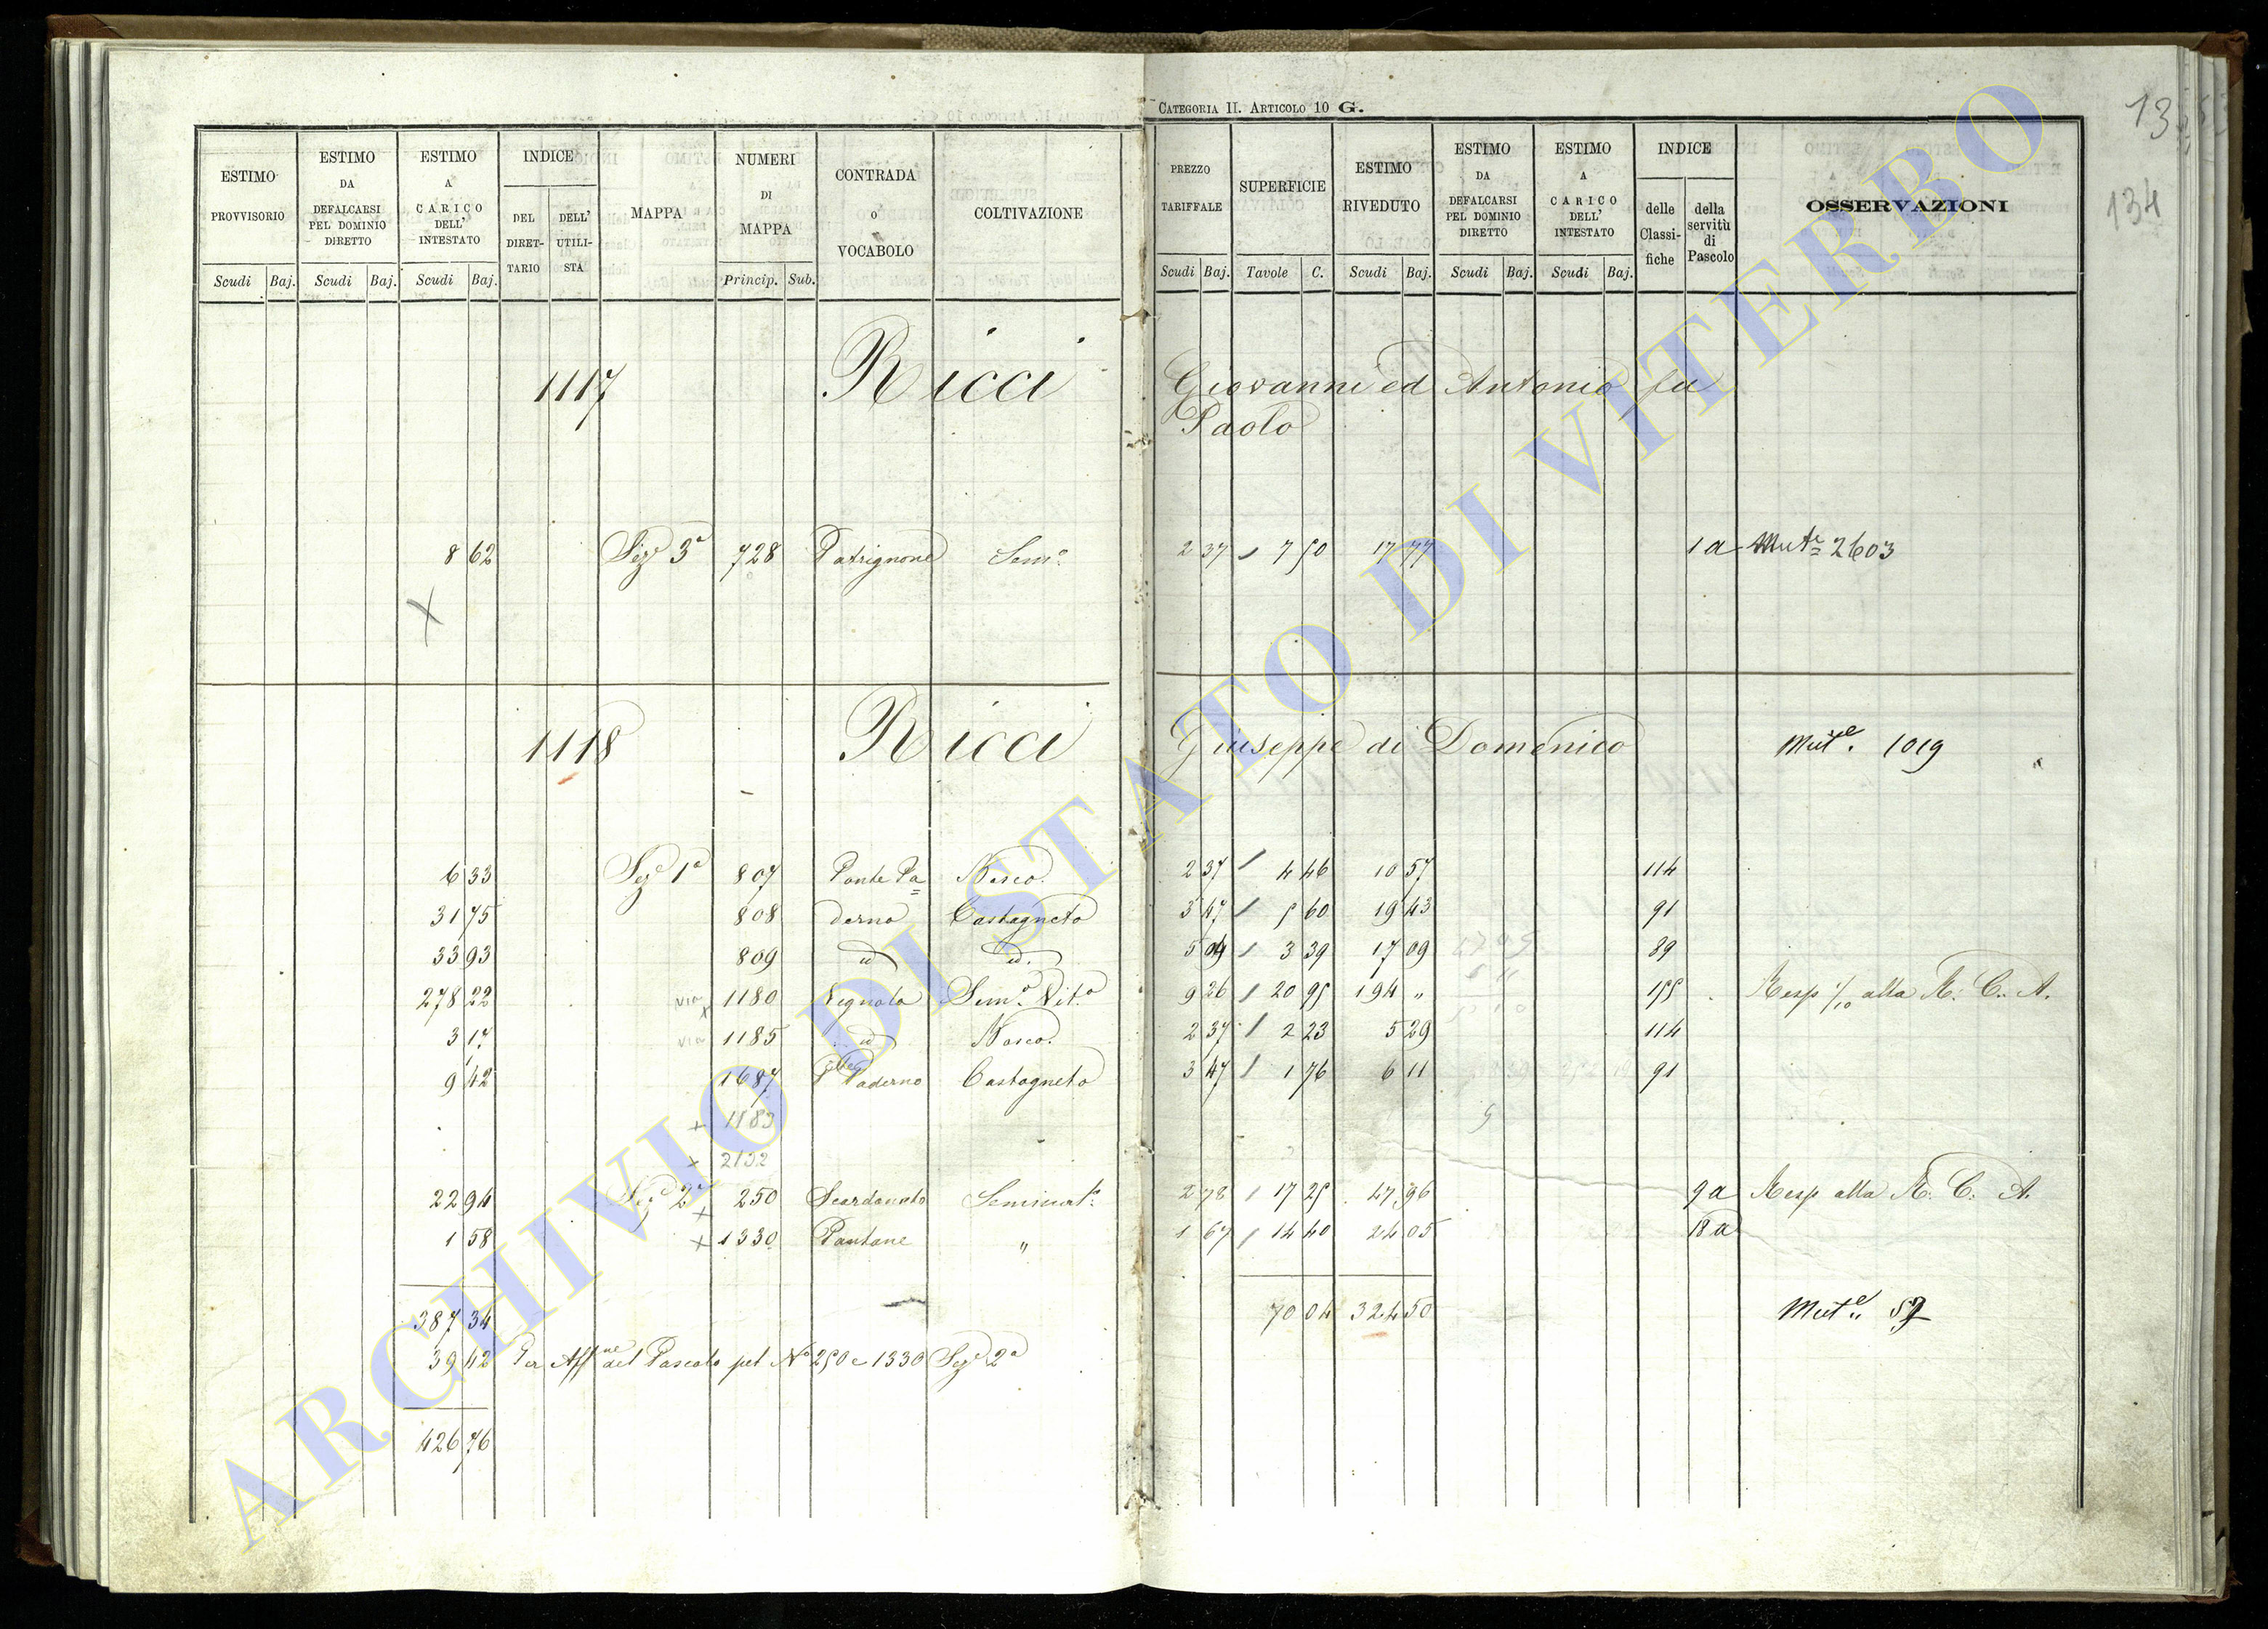 CATEGORIA II. ARTICOLO 10 G.
13
134
ESTIMO PROVVISORIO Scudi Baj.
ESTIMO DA DEFALCARSI PEL DOMINIO DIRETTO Scudi Baj.
ESTIMO A CARICO DELL' INTESTATO Scudi Baj.
INDICE DEL DIRETTARIO DELL' UTILISTA
MAPPA
NUMERI DI MAPPA Princip. Sub.
CONTRADA O VOCABOLO
COLTIVAZIONE
PREZZO TARIFFALE Scudi Baj.
SUPERFICIE Tavole C.
ESTIMO RIVEDUTO Scudi Baj.
ESTIMO DA DEFALCARSI PEL DOMINIO DIRETTO Scudi Baj.
ESTIMO A CARICO DELL' INTESTATO Scudi Baj.
INDICE delle Classifiche della servitù di Pascolo
OSSERVAZIONI
1117 Ricci Giovanni ed Antonio fu
Paolo
8 62 Sezᵉ 3ᵃ 728 Patrignone Semᵒ 2 37 7 50 17 77 1a Mutᵉ 2603
X
1118 Ricci Giuseppe di Domenico Mutᵉ. 1019
6 33 Sezᵉ 1ᵃ 807 Ponte Pa= Bosco. 2 37 4 46 10 57 114
31 75 808 derno Castagneto 3 47 5 60 19 43 91
33 93 809 id id. 5 04 3 39 17 09 89
278 22 via x 1180 Vignola Semᵒ Vitᵒ 9 26 20 95 194 " 155 Resp 1/10 alla R. C. A.
3 17 via 1185 id Bosco. 2 37 2 23 5 29 114
9 42 1687 Paderno Castagneto 3 47 1 76 6 11 91
x 1183
x 2132
22 94 Sezᵉ 2ᵃ x 250 Seminatᵒ 2 78 17 25 47 96 9a Resp alla R. C. A.
1 58 x 1330 Pantane " 1 67 14 40 24 05 18a
387 34 70 04 324 50 Mutᵉ
39 42 Per Affⁿᵉ del Pascolo pel Nᵒ 250 e 1330 Sezᵉ 2ᵃ
426 76
ARCHIVIO DI STATO DI VITERBO